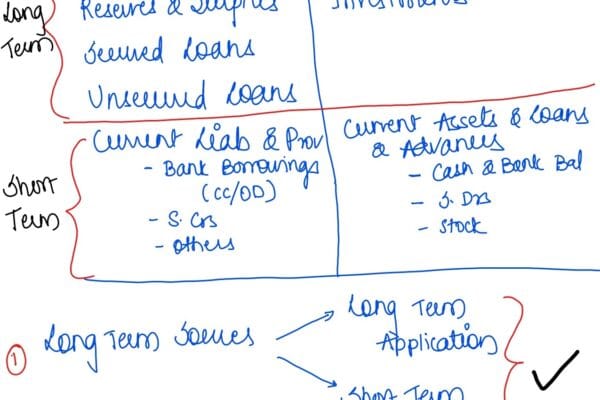 Long
Term
Reserves & Surplus
Investments
Secured Loans
Unsecured Loans
Short
Term
Current Liab & Prov
- Bank Borrowings
(CC/OD)
- S. Crs
- Others
Current Assets & Loans
& Advances
- Cash & Bank Bal
- S. Drs
- Stock
1
Long Term Sources
Long Term
Application
Short Term